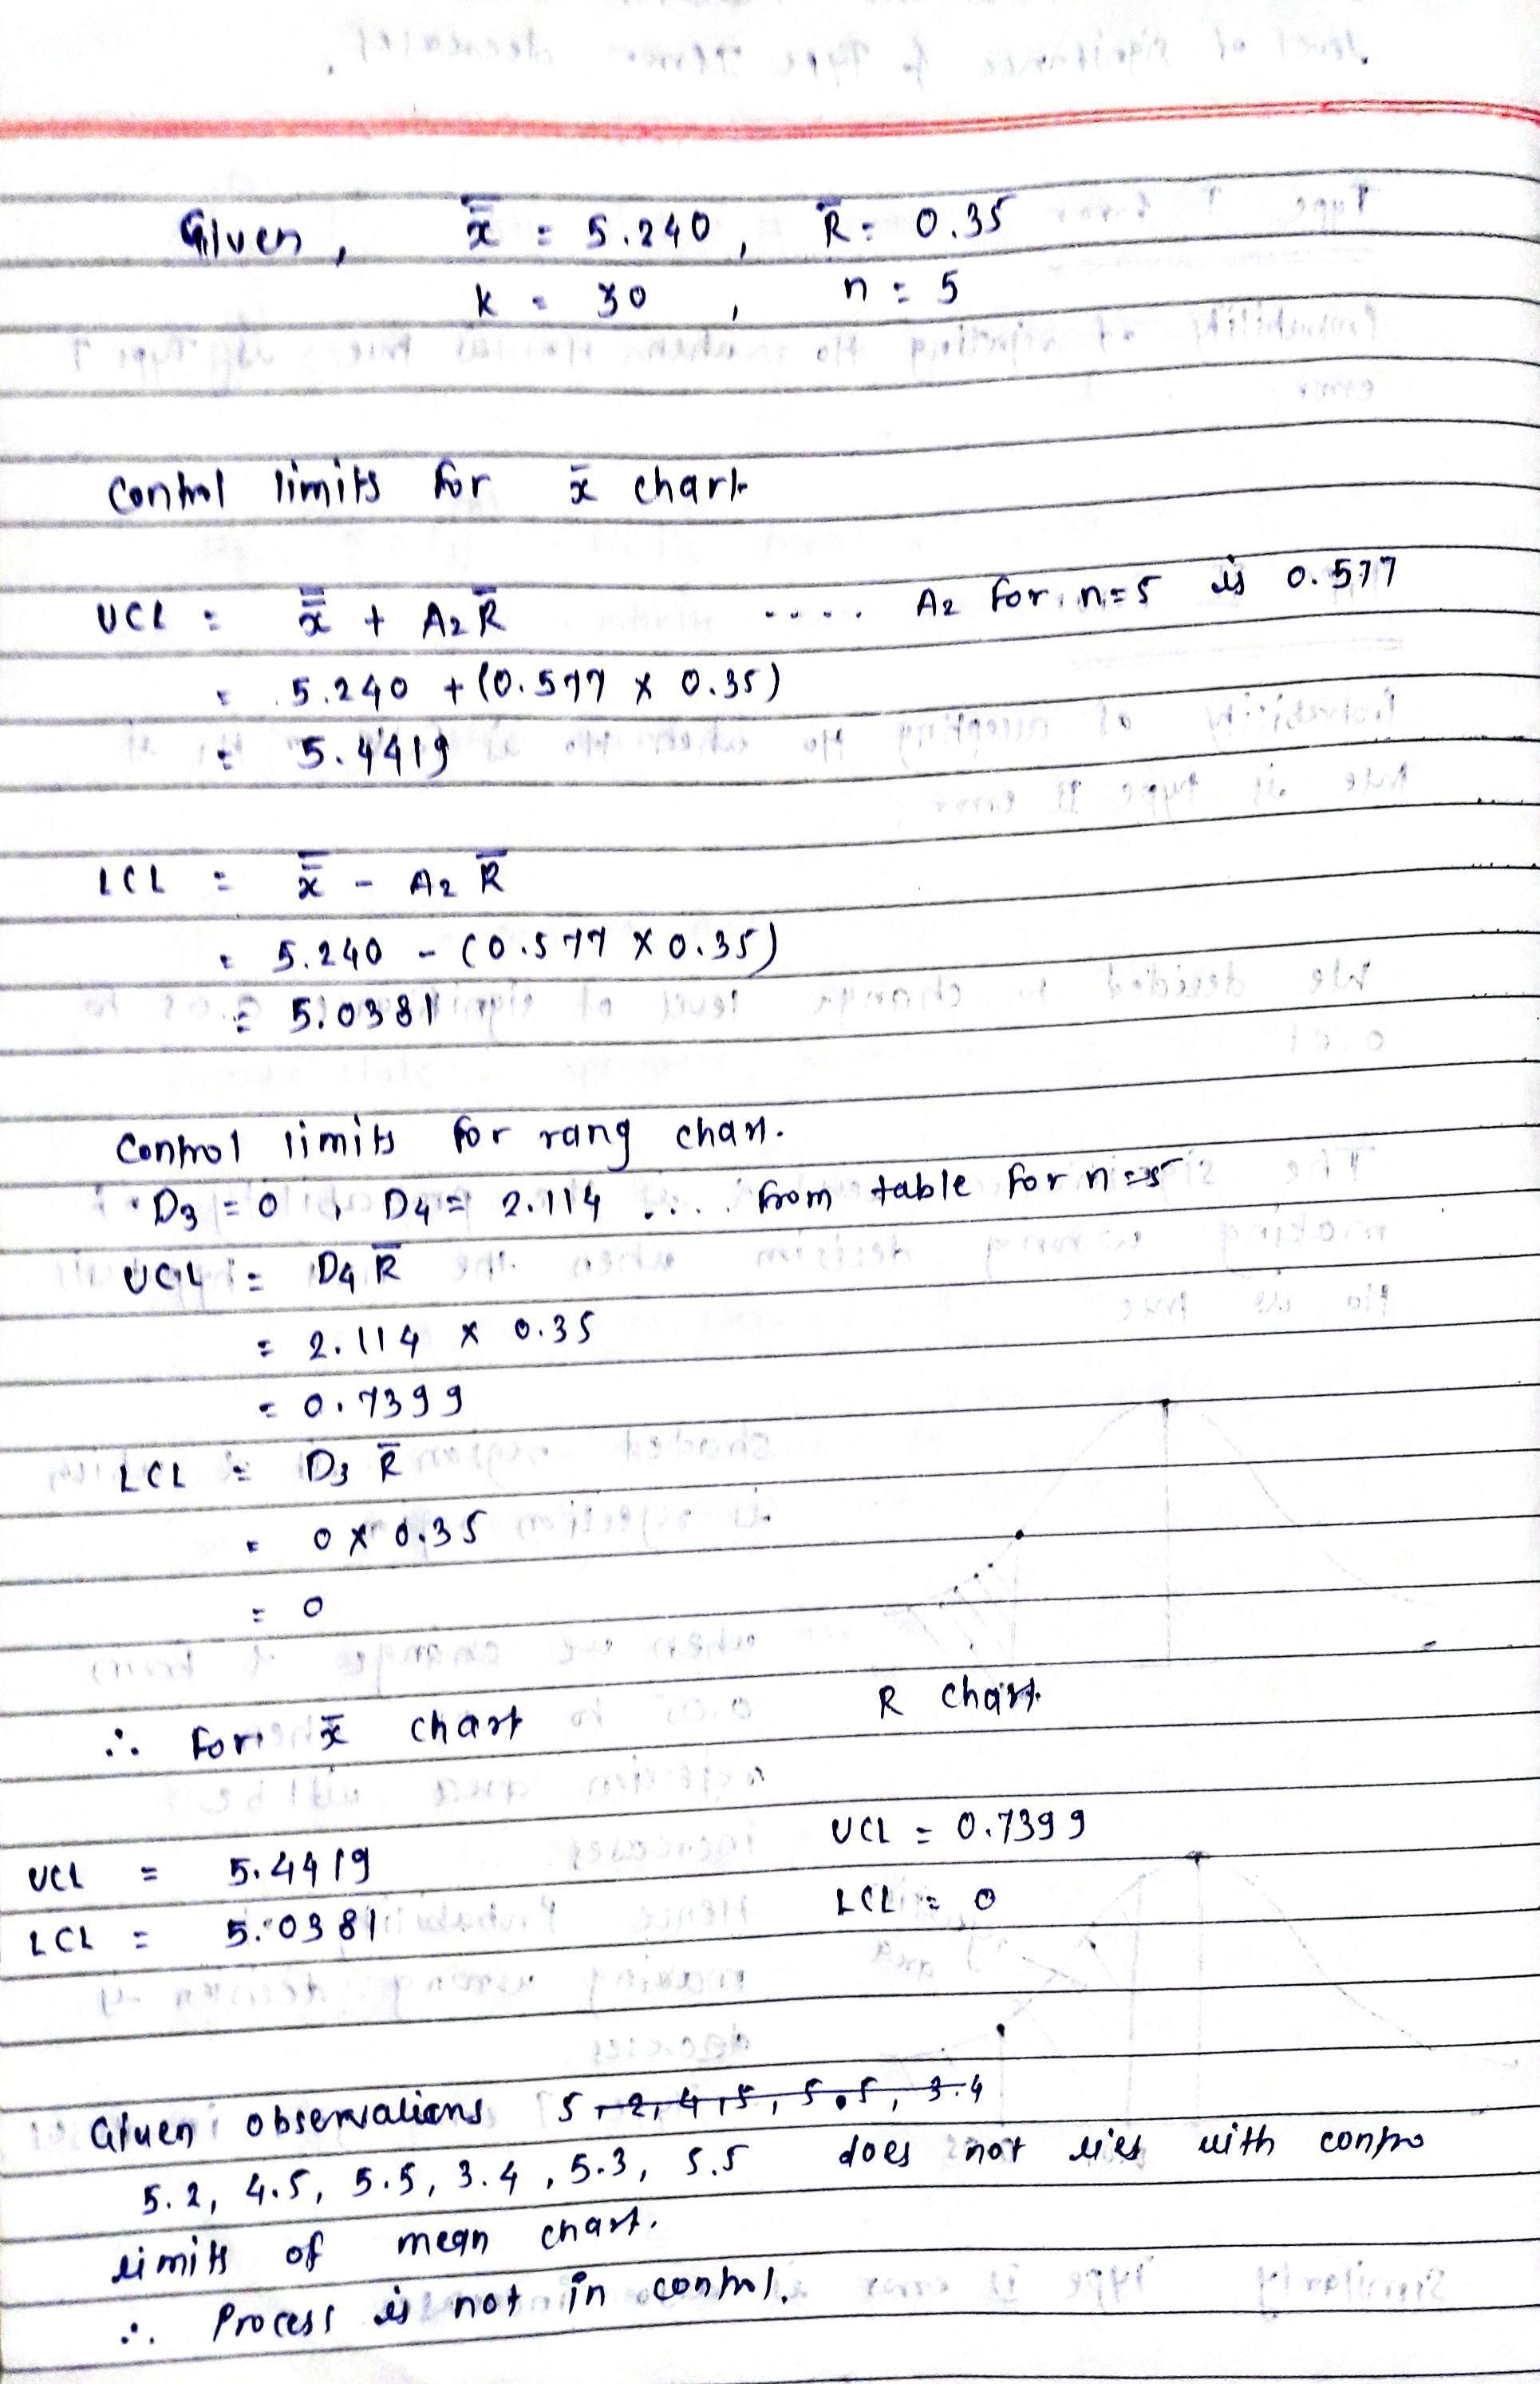 Given, x̿ = 5.240, R̄ = 0.35
k = 30, n = 5
Control limits for x̄ chart
UCL = x̿ + A2R̄ .... A2 for n=5 is 0.577
= 5.240 + (0.577 x 0.35)
= 5.4419
LCL = x̿ - A2 R̄
= 5.240 - (0.577 x 0.35)
= 5.0381
Control limits for rang chart.
D3 = 0, D4 = 2.114 .... from table for n=5
UCL = D4 R̄
= 2.114 x 0.35
= 0.7399
LCL = D3 R̄
= 0 x 0.35
= 0
∴ for x̄ chart R chart
UCL = 5.4419 UCL = 0.7399
LCL = 5.0381 LCL = 0
Given observations 5.2, 4.5, 5.5, 3.4
5.2, 4.5, 5.5, 3.4, 5.3, 5.5 does not lies with contro
limits of mean chart.
∴ Process is not in control.